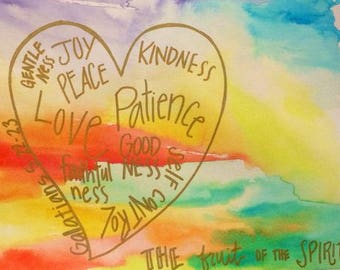 GENTLE
NESS
JOY
KINDNESS
PEACE
LOVE
Patience
GOOD
NESS
faithful
ness
SELF CONTROL
Galatians 5:22-23
THE fruit OF THE SPIRIT